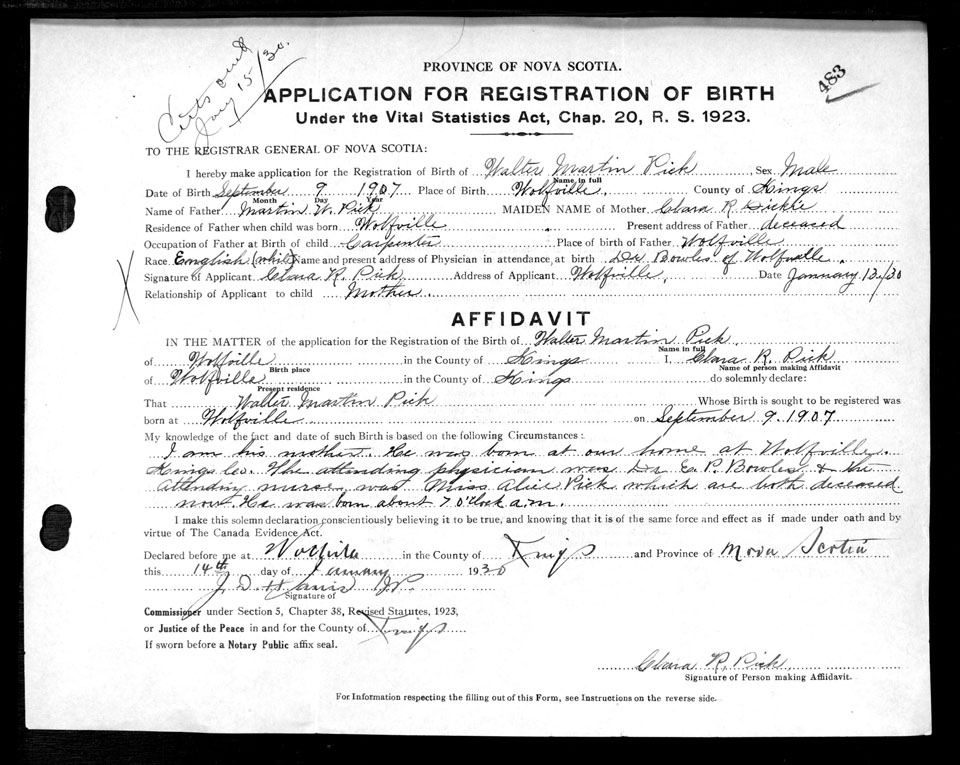 Certs out
Jany 15/30.
483
PROVINCE OF NOVA SCOTIA.
APPLICATION FOR REGISTRATION OF BIRTH
Under the Vital Statistics Act, Chap. 20, R. S. 1923.
TO THE REGISTRAR GENERAL OF NOVA SCOTIA:
I hereby make application for the Registration of Birth of Walter Martin Pick Sex Male
Name in full
Date of Birth September 9 1907 Place of Birth Wolfville. County of Kings
Month Day Year
Name of Father Martin W. Pick MAIDEN NAME of Mother Clara R. Dickie
Residence of Father when child was born Wolfville Present address of Father deceased
Occupation of Father at Birth of child Carpenter Place of birth of Father Wolfville
Race English (white) Name and present address of Physician in attendance at birth Dr. Bowles of Wolfville.
Signature of Applicant Clara R. Pick Address of Applicant Wolfville. Date January 13/30
Relationship of Applicant to child Mother.
X
AFFIDAVIT
IN THE MATTER of the application for the Registration of the Birth of Walter Martin Pick.
Name in full
of Wolfville in the County of Kings I, Clara R. Pick
Birth place Name of person making Affidavit
of Wolfville in the County of Kings do solemnly declare:
Present residence
That Walter Martin Pick Whose Birth is sought to be registered was
born at Wolfville on September 9. 1907
My knowledge of the fact and date of such Birth is based on the following Circumstances:
I am his mother. He was born at our home at Wolfville.
Kings Co. The attending physician was Dr E. P. Bowles & the
attending nurse was Miss Alice Pick which are both deceased
now. He was born about 7 O'clock a.m.
I make this solemn declaration conscientiously believing it to be true, and knowing that it is of the same force and effect as if made under oath and by
virtue of The Canada Evidence Act.
Declared before me at Wolfville in the County of Kings and Province of Nova Scotia
this 14th day of January 1930
J. D. Harris J.P.
Signature of
Commissioner under Section 5, Chapter 38, Revised Statutes, 1923,
or Justice of the Peace in and for the County of Kings
If sworn before a Notary Public affix seal.
Clara R. Pick
Signature of Person making Affidavit.
For Information respecting the filling out of this Form, see Instructions on the reverse side.